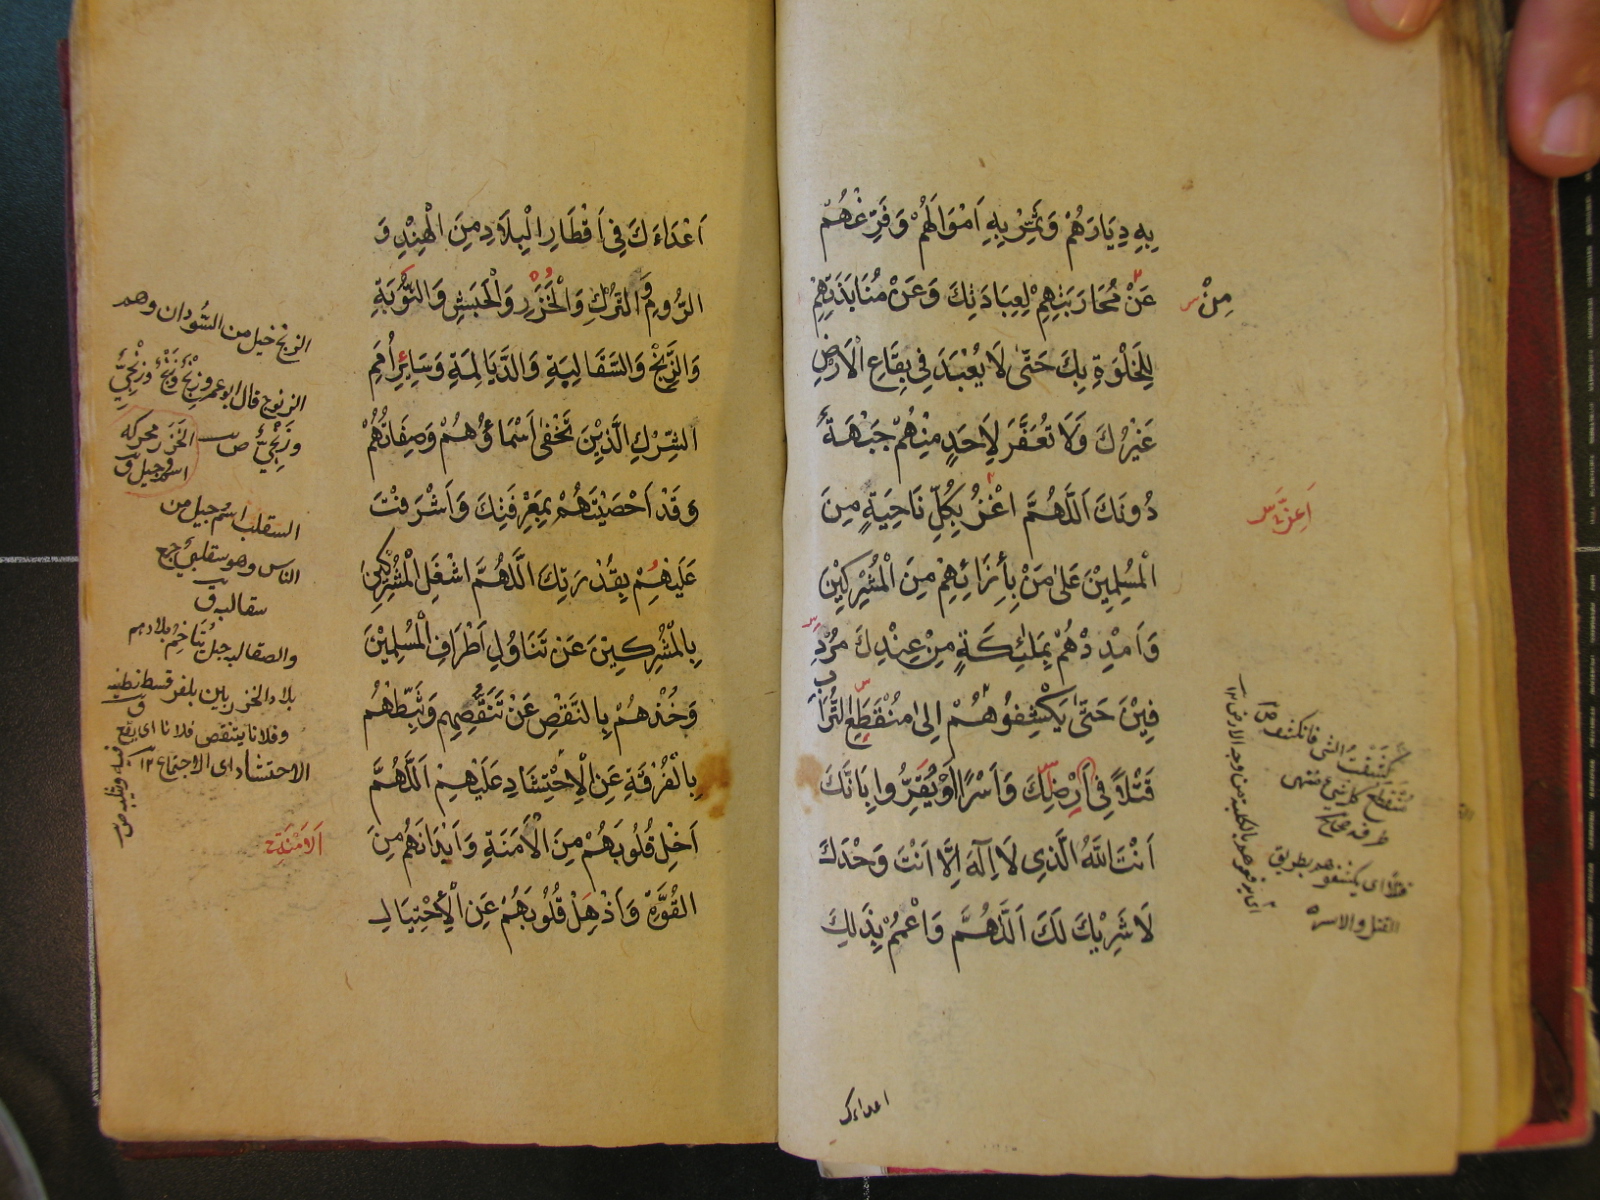 بِهِ دِيَارَهُمْ وَثَمِّرْ بِهِ اَمْوَالَهُمْ وَفَرِّغْهُمْ
عَنْ مُحَارَبَتِهِمْ لِعِبَادَتِكَ وَعَنْ مُنَابَذَتِهِمْ
لِلْخَلْوَةِ بِكَ حَتّٰى لَا يُعْبَدَ فِي بِقَاعِ الْاَرْضِ
غَيْرُكَ وَلَا تُعَفَّرَ لِاَحَدٍ مِنْهُمْ جَبْهَةٌ
دُونَكَ اَللّٰهُمَّ اغْزُ بِكُلِّ نَاحِيَةٍ مِنَ
الْمُسْلِمِيْنَ عَلٰى مَنْ بِأِزَائِهِمْ مِنَ الْمُشْرِكِيْنَ
وَاَمْدِدْهُمْ بِمَلٰئِكَةٍ مِنْ عِنْدِكَ مُرْدِ
فِيْنَ حَتّٰى يَكْشِفُوهُمْ اِلٰى مُنْقَطَعِ التُّرَابِ
قَتْلًا فِي اَرْضِكَ وَاَسْرًا اَوْ يُقِرُّوا بِاَنَّكَ
اَنْتَ اللّٰهُ الَّذِي لَا اِلٰهَ اِلَّا اَنْتَ وَحْدَكَ
لَا شَرِيْكَ لَكَ اَللّٰهُمَّ وَاعْمُمْ بِذٰلِكَ
مِنْ س
اَعِزَّ س
القتل والاسره
اعداءك
اَعْدَاءَكَ فِي اَقْطَارِ الْبِلَادِ مِنَ الْهِنْدِ وَ
الرُّومِ وَ التُّرْكِ وَالْخَزَرِ وَالْحَبَشِ وَالنُّوْبَةِ
وَالزَّنْجِ وَالسَّقَالِبَةِ وَالدَّيَالِمَةِ وَسَائِرِ اُمَمِ
الشِّرْكِ الَّذِيْنَ تَخْفٰى اَسْمَاؤُهُمْ وَصِفَاتُهُمْ
وَقَدْ اَحْصَيْتَهُمْ بِمَعْرِفَتِكَ وَاَشْرَفْتَ
عَلَيْهِمْ بِقُدْرَتِكَ اَللّٰهُمَّ اشْغَلِ الْمُشْرِكِيْنَ
بِالْمُشْرِكِيْنَ عَنْ تَنَاوُلِ اَطْرَافِ الْمُسْلِمِيْنَ
وَخُذْهُمْ بِالنَّقْصِ عَنْ تَنَقُّصِهِمْ وَثَبِّطْهُمْ
بِالْفُرْقَةِ عَنِ الْاِحْتِشَادِ عَلَيْهِمْ اَللّٰهُمَّ
اَخْلِ قُلُوبَهُمْ مِنَ الْاَمَنَةِ وَاَبْدَانَهُمْ مِنَ
الْقُوَّةِ وَاَذْهِلْ قُلُوبَهُمْ عَنِ الْاِحْتِيَالِ
الزنج خيل من السُّودان وهم
الزنوج قال ابو عمرو زِنْجٌ وَزَنْجٌ وزِنْجِيٌّ
وزَنْجِيٌّ ص
الخَزَر محركه
اسم جيل ق
السقلب اسم جيل من
الناس وهو سقلبيٌّ ج
سقالبه ق
والصقالبه جيل تُتَاخِمُ بلادهم
بلاد الخزر بين بلغر قسطنطنيه
وفلانا يتنقص فلانا اى يقع
الاحتشاد اى الاجتماع ١٢
اَلْاَمْنَةِ